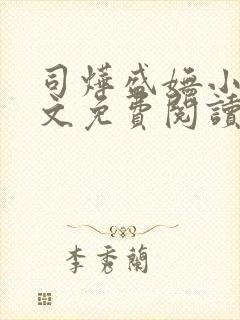 司燁盛嫵小
文免費閱讀
李秀蘭